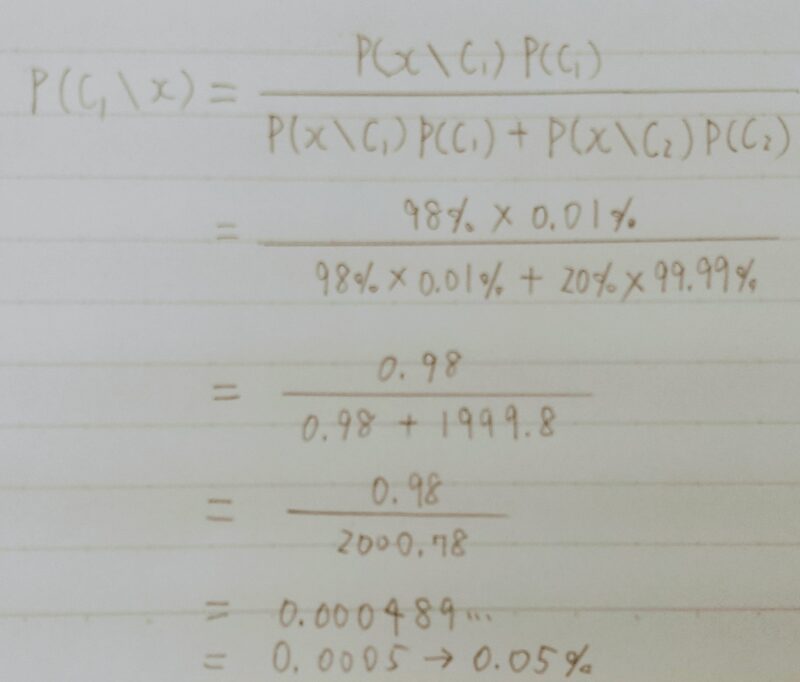 P(C₁\x) = P(x\C₁) P(C₁) / P(x\C₁) P(C₁) + P(x\C₂) P(C₂)
= 98% × 0.01% / 98% × 0.01% + 20% × 99.99%
= 0.98 / 0.98 + 1999.8
= 0.98 / 2000.78
= 0.000489...
= 0.0005 → 0.05%